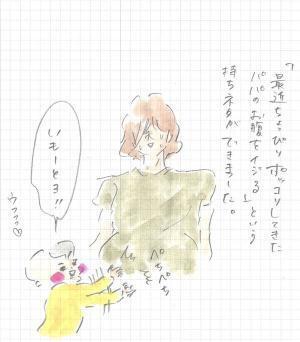 「最近ちょっぴりポッコリしてきた
パパのお腹をイジる」という
持ちネタができました。
いもーとヨ!!
ぺち
ぺち
ウフフ♡